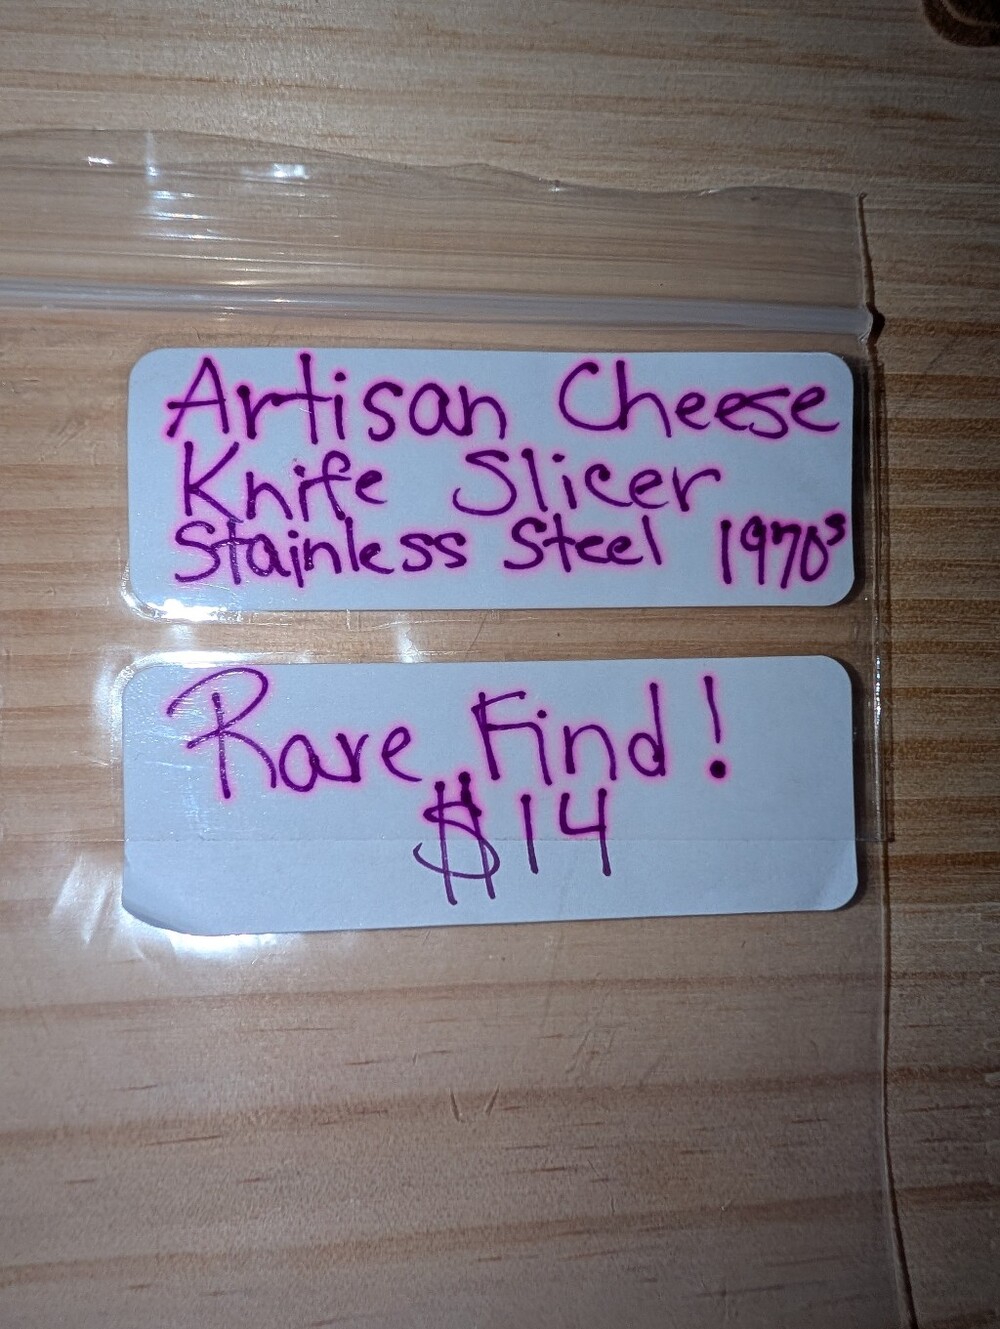 Artisan Cheese
Knife Slicer
Stainless Steel 1970s
Rare Find!
$14